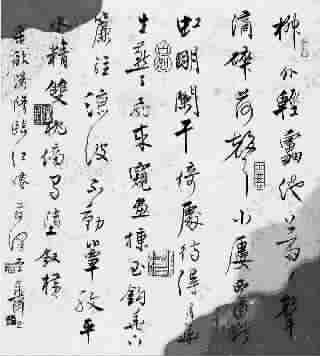 柳外輕雷池上雨聲
滴碎荷聲小樓西角斷
虹明闌干倚處待得月華
生燕子飛來窺畫棟玉鉤垂下
簾旌涼波不動簟紋平
水精雙枕傍有墮釵橫
歐陽修臨江仙